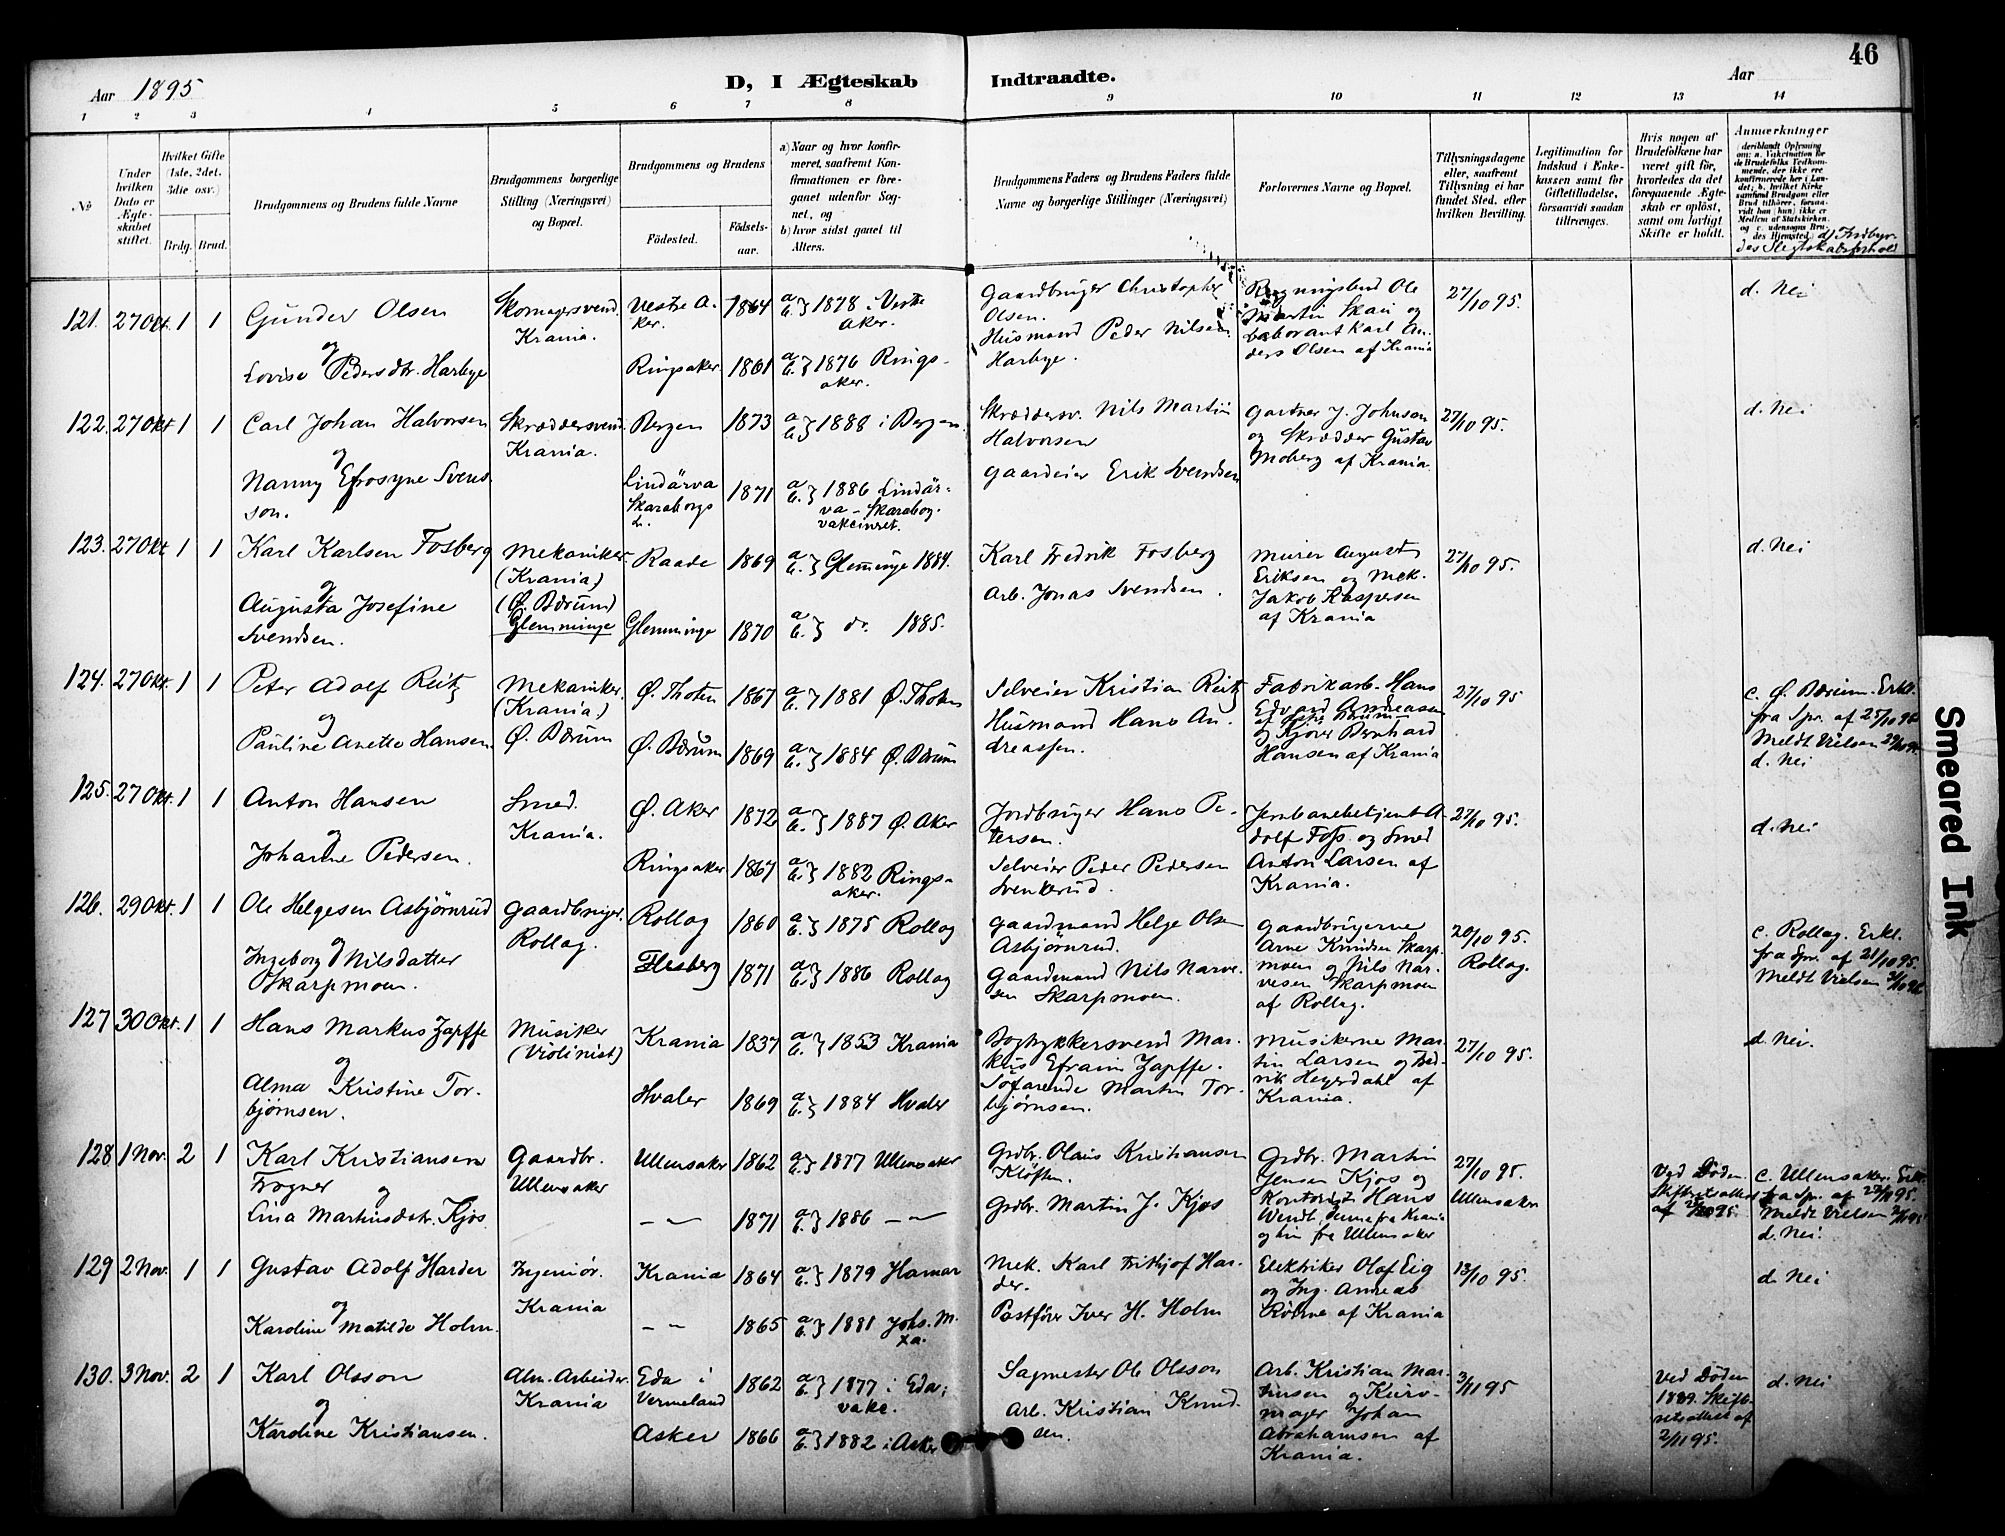 46
Aar 1895
D, I Ægteskab Indtraadte.
Aar
1 2 3 4 5 6 7 8 9 10 11 12 13 14
No
Under hvilken Dato er Ægteskabet stiftet.
Hvilket Gifte (1ste, 2det, 3die osv.)
Brdg. Brud.
Brudgommens og Brudens fulde Navne
Brudgommens borgerlige Stilling (Næringsvei) og Bopæl.
Brudgommens og Brudens
Födested.
Födselsaar.
a) Naar og hvor konfirmeret, saafremt Konfirmationen er foregaaet udenfor Sognet, og
b) hvor sidst gaaet til Alters.
Brudgommens Faders og Brudens Faders fulde Navne og borgerlige Stillinger (Næringsvei)
Forlovernes Navne og Bopæl.
Tillysningsdagene eller, saafremt Tillysning ei har fundet Sted, efter hvilken Bevilling.
Legitimation for Indskud i Enkekassen samt for Giftetilladelse, forsaavidt saadan tiltrænges.
Hvis nogen af Brudefolkene har været gift för, hvorledes da det foregaaende Ægteskab er oplöst, samt om lovligt Skifte er holdt.
Anmærkninger (deriblandt Oplysning om: a. Vakcination for de Brudefolks Vedkommende, der ikke ere konfirmerede her i Landet; b. hvilket Kirkesamfund Brudgom eller Brud tilhörer, forsaavidt han (hun) ikke er Medlem af Statskirken, og c. udensogns Brudes Hjemsted.) d) Indbyrdes Slegtskabsforhold
121. 27 Okt. 1 1
Gunder Olsen
og
Lovise Pedersdtr. Harbye
Skomagersvend. Krania.
Vestre Aker. 1864
a b } 1878 i Vestre Aker.
Ringsaker 1861
a b } 1876 Ringsaker.
Gaardbruger Christopher Olsen.
Husmand Peder Nilsen Harbye.
Ole Martin Skau og Laborant Karl Anders Olsen af Krania
27/10 95.
d. Nei
122. 27 Okt 1 1
Carl Johan Halvorsen
og
Nanny Efrosyne Svensson.
Skræddersvend. Krania.
Bergen 1873
a b } 1888 i Bergen.
Lindärva Skaraborgs L. 1871
a b } 1886 Lindärva - Skarabog. vakcinet.
Skræddersv. Nils Martin Halvorsen
Gaardeier Erik Svendsen
Gartner J. Johnson og Skrædder Gustav Moberg af Krania.
27/10 95.
d. Nei
123. 27 Okt 1 1
Karl Karlsen Fosberg
og
Augusta Josefine Svendsen.
Mekaniker. (Krania) (Ø. Bærum) Glemminge
Raade 1869
a b } Glemminge 1884.
Glemminge 1870
a b } do. 1885.
Karl Fredrik Fosberg
Arb. Jonas Svendsen.
Murer August Eriksen og Mek. Jakob Kaspersen af Krania
27/10 95.
d. Nei
124. 27 Okt. 1 1
Peter Adolf Reitz
og
Pauline Anette Hansen.
Mekaniker. (Krania.) Ø. Bærum
Ø. Thoten 1867
a b } 1881 Ø. Thoten
Ø. Bærum 1869
a b } 1884 Ø. Bærum
Selveier Kristian Reitz
Husmand Hans Andreassen.
Fabrikarb. Hans Edvard Andreasen af Østre Bærum og Kjører Bernhard Hansen af Krania
27/10 95
c. Ø. Bærum. Erkl. fra Spr. af 25/10 95 Meldt Vielsen 29/10 95.
d. Nei
125. 27 Okt. 1 1
Anton Hansen
og
Johanne Pedersen.
Smed. Krania.
Ø. Aker 1872
a b } 1887 Ø. Aker
Ringsaker 1867
a b } 1882 Ringsaker.
Jordbruger Hans Petersen.
Selveier Peder Pedersen Svenkerud.
Jernbanebetjent Adolf Foss. og Smed Anton Larsen af Krania.
27/10 95.
d. Nei
126. 29 Okt. 1 1
Ole Helgesen Asbjørnrud
og
Ingeborg Nilsdatter Skarpmoen.
Gaardbruger. Rollag.
Rollag 1860
a b } 1875 Rollag
Flesberg 1871
a b } 1886 Rollag
Gaardmand Helge Olsen Asbjörnrud.
Gaardmand Nils Narvesen Skarpmoen.
Gaardbrugerne Arne Knudsen Skarpmoen og Nils Narvesen Skarpmoen af Rollag.
20/10 95. Rollag.
c. Rollag. Erkl. fra Spr. af 21/10 95. Meldt Vielsen 31/10 95
127 30 Okt. 1 1
Hans Markus Zapffe
og
Alma Kristine Torbjørnsen.
Musiker (Violinist)
Krania 1837
a b } 1853 Krania
Hvaler 1869
a b } 1884 Hvaler
Bogtykkersvend Markus Efraim Zapffe.
Søfarende Martin Torbjørnsen.
Musikerne Martin Larsen og Fredrik Heyerdahl af Krania.
27/10 95.
d. Nei.
128 1 Nov. 2 1
Karl Kristiansen Frogner
og
Lina Martinsdatr. Kjos.
Gaardbr. Ullensaker
Ullensaker 1862
a b } 1877 Ullensaker
— 〃 — 1871
a b } 1886 — 〃 —
Grdbr. Olaus Kristiansen Kløften.
Grdbr. Martin J. Kjos
Grdbr. Martin Jensen Kjos og Kontorist Hans Wendt denne fra Krania og hin fra Ullensaker
27/10 95. Ullensaker
Ved Døden. Skifteretsattest af 25/10 95.
c. Ullensaker. Erkl. fra Spr. af 27/10 95. Meldt Vielsen 2/11 95
d. Nei.
129 2 Nov. 1 1
Gustav Adolf Harder
og
Karoline Matilde Holm.
Ingeniør. Krania
Krania 1864
a b } 1879 Hamar
— 〃 — 1865
a b } 1881 Johs. M. Xa.
Mek. Karl Frithjof Harder.
Postfører Iver H. Holm
Elektriker Olof Eig og Ing. Andreas Røhne af Krania
13/10 95.
d. Nei
130. 3 Nov. 2 1
Karl Olsson
og
Karoline Kristiansen.
Alm. Arbeider. Krania
Eda i Vermeland 1862
a b } 1877 i Eda; vakc.
Asker 1866
a b } 1882 i Asker
Sagmester Ole Olsson
Arb. Kristian Knudsen.
Arb. Kristian Martinsen og Kurvmager Johan Abrahamsen af Krania.
3/11 95
Ved Døden 1889. Skifteretsattest af 2/11 95.
d. Nei
Smeared Ink